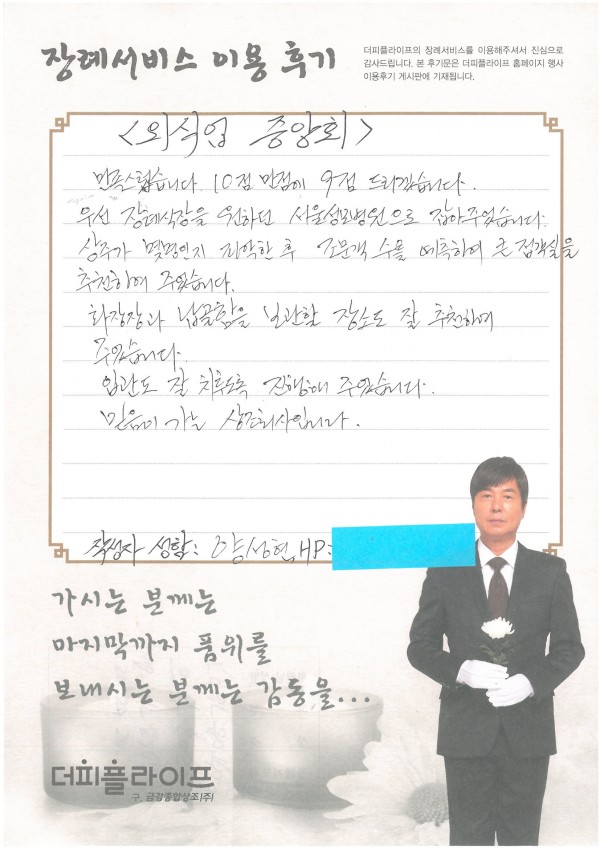 장례서비스 이용 후기
더피플라이프의 장례서비스를 이용해주셔서 진심으로
감사드립니다. 본 후기문은 더피플라이프 홈페이지 행사
이용후기 게시판에 기재됩니다.
<외식업 중앙회>
만족스럽습니다. 10점 만점에 9점 드리겠습니다.
우선 장례식장을 원하던 서울성모병원으로 잡아주었습니다.
상주가 몇명인지 파악한 후 조문객 수를 예측하여 큰 접객실을
추천하여 주었습니다.
화장장과 납골함을 보관할 장소도 잘 추천하여
주었습니다.
입관도 잘 치루도록 진행해 주었습니다.
믿음이 가는 상조회사입니다.
작성자 성함: 양성현, HP:
가시는 분께는
마지막까지 품위를
보내시는 분께는 감동을...
더피플라이프
구. 금강종합상조(주)